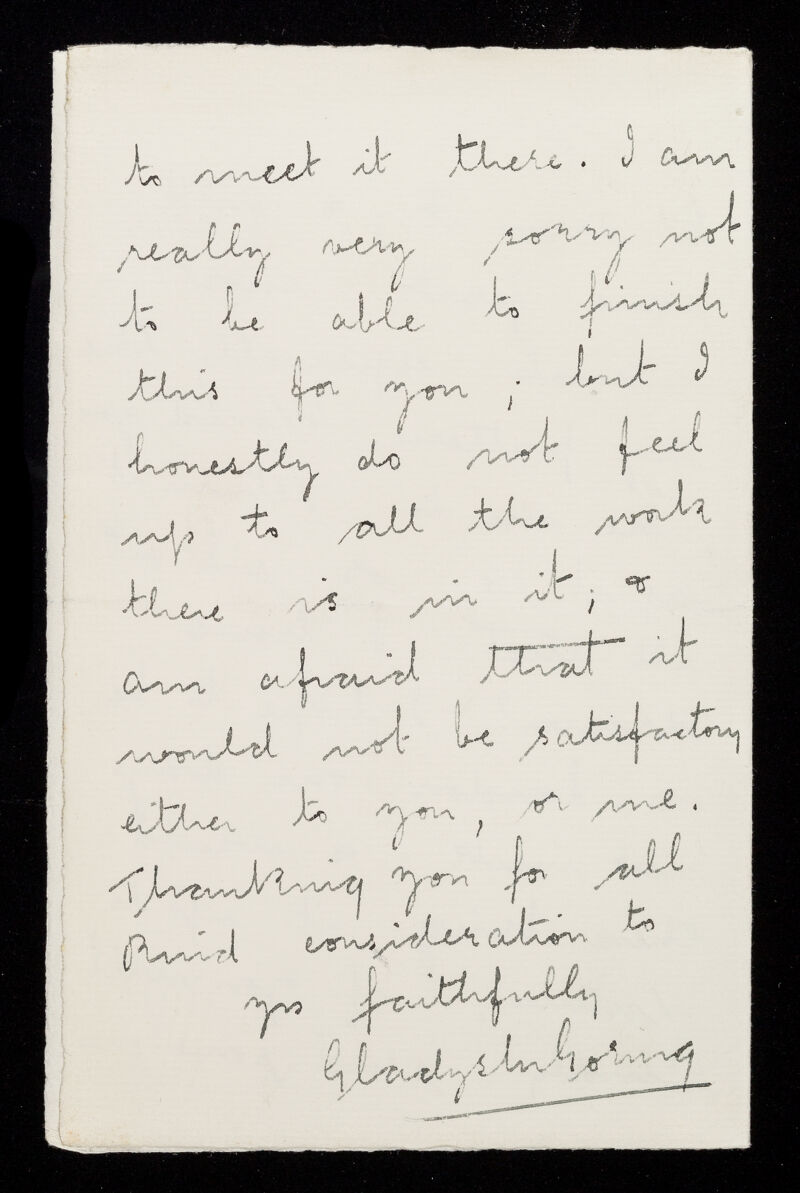 to meet it there. I am
really very sorry not
to be able to finish
this for you; but I
honestly do not feel
up to all the work
there is in it; &
am afraid that it
would not be satisfactory
either to you, or me.
Thanking you for all
kind consideration to
yrs faithfully
Gladys